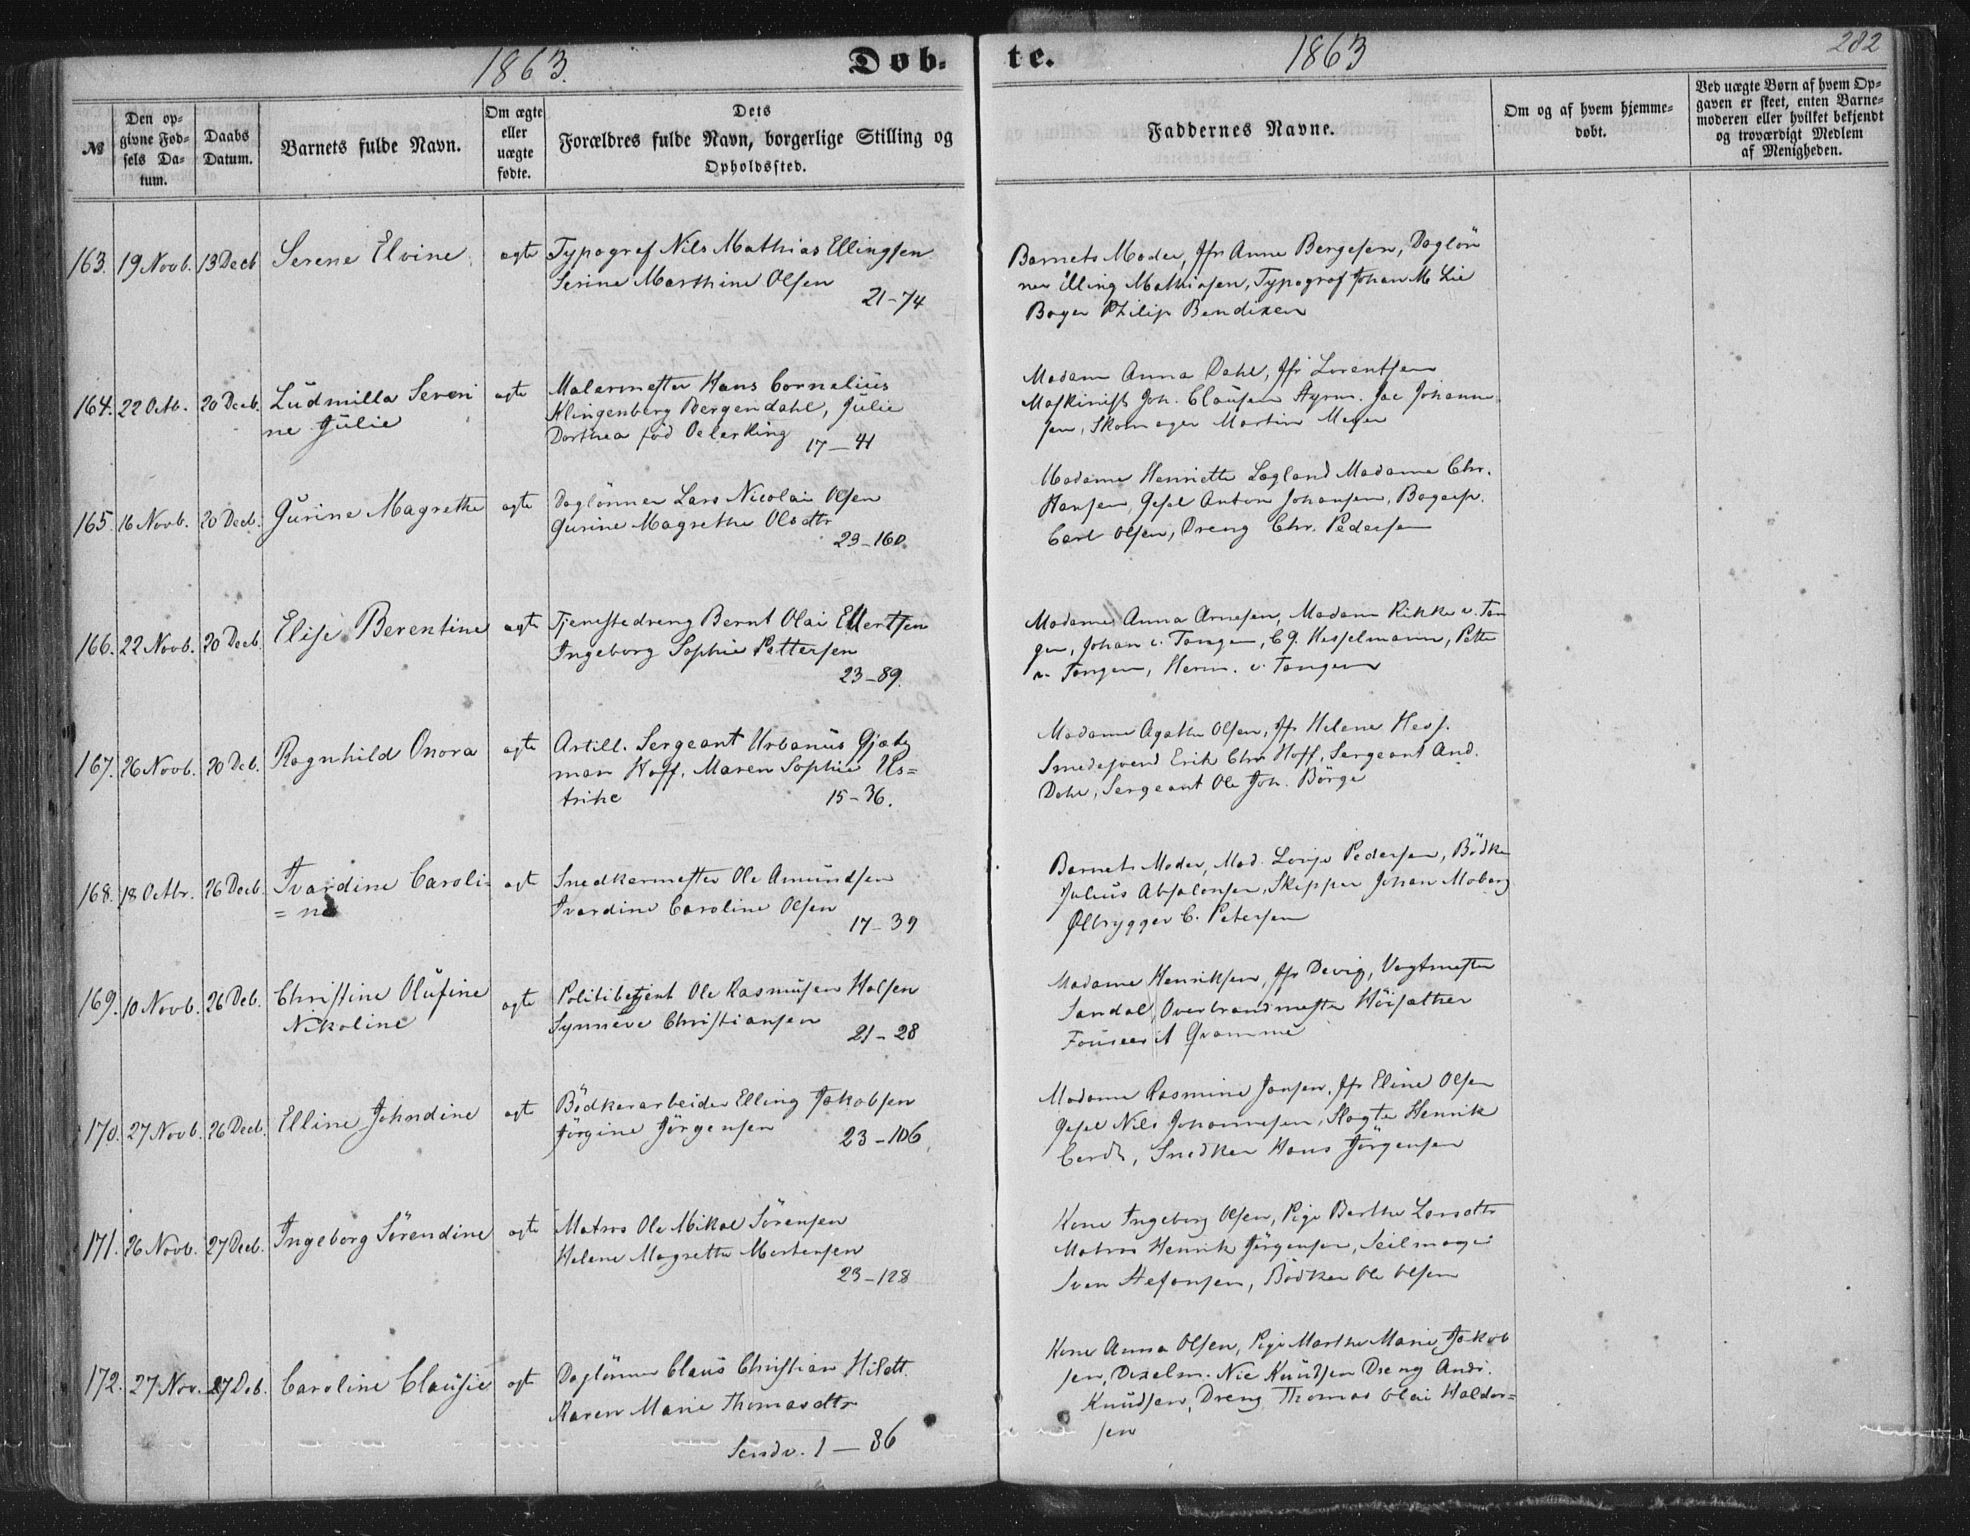 1863. Døb-
No
Den op-
givne Fød-
sels Da-
tum.
Daabs
Datum.
Barnets fulde Navn.
Om ægte
eller
uægte
fødte.
Dets
Forældres fulde Navn, borgerlige Stilling og
Opholdssted.
163. 19 Novb. 13 Decb Serene Elvine. ægte Typograf Nils Mathias Ellingsen
Serine Marthine Olsen
21-74
164. 22 Octb. 20 Decb. Ludmilla Severi ægte Malermester Hans Cornelius
ne Julie Klingenberg Bergendahl, Julie
Dorthea fød Oelerking
17-41
165. 16 Novb. 20 Decb. Gurine Magrethe ægte Daglønner Lars Nicolai Olsen
Gurine Magrethe Olsdtr
23-160.
166. 22 Novb. 20 Decb. Elise Berentine ægte Tjenestedreng Bernt Olai Ellertsen
Ingeborg Sophie Pettersen
23-89.
167. 26 Novb. 20 Deb. Ragnhild Onora ægte Artill. Sergeant Urbanus
man Hoff, Maren Sophie Us=
trike 15-36.
168. 18 Octbr. 26 Decb. Ivardine Caroli= ægt Snedkermester Ole Amundsen
= ne Ivardine Caroline Olsen
17-39
169. 10 Novb. 26 Deb. Christine Olufine ægte Politibetjent Ole Rasmusen Halsen
Nikoline Synneve Christiansen
21-28
170. 27 Novb. 26 Decb. Elline Johndine ægt Bødkerarbeider Elling Jakobsen
Jørgine Jørgensen
23-106.
171. 26 Novb. 27 Decb. Ingeborg Sørendine ægte Matros Ole Mikal Sørensen
Helene Magrethe Mortensen
23-128
172. 27 Nov. 27 Deb. Caroline Clausie ægt Daglønner Claus Christian Hildt.
Karen Marie Thomasdtr
Sandv. 1-86
te. 1863 282
Faddernes Navne.
Om og af hvem hjemme-
døbt.
Ved uægte Børn af hvem Op-
gaven er skeet, enten Barne-
moderen eller hvilket bekjendt
og troværdigt Medlem
af Menigheden.
Barnets Moder, Jfr Anne Bergesen, Dagløn
ner Elling Mathiasen, Typograf Johan M. Lie
Bager Philip Bendixen
Madam Anna Dahl, Jfr Lorentsen
Maskinist Joh. Clausen Styrm. Jac Johanne
sen, Skomager Martin Meyer
Madame Henriette Lagland Madame Chr.
Hansen, Gesel Anton Johansen, Bagersv.
Carl Olsen, Dreng Chr. Pedersen
Madame Anna Arnesen, Madam Rikke v. Tan
gen, Johan v. Tangen, C. G. Hesselmann, Petter
v. Tangen, Herm. v. Tangen
Madame Agathe Olsen, Jfr Helene Hess.
Smedesvend Erik Chr Hoff, Sergeant And.
Dahl, Sergeant Ole Joh. Børge
Barnets Moder, Mad. Lovise Pedersen, Bødker
Julius Absalonsen, Skipper Johan Moberg
Ølbrygger C. Petersen
Madame Henriksen, Jfr Devig, Vagtmester
Sandal, Overbrandmester Høisæther
A Gramme
Madame Rasmine Jansen, Jfr Eline Olsen
Gesel Nils Johannesen, Slagter Henrik
Snedker Hans Jørgensen
Kone Ingeborg Olsen, Pige Berthe Larsdtr
Matros Henrik Jørgensen, Seilmager
Sven Stefansen, Bødker Ole Olsen
Kone Anna Olsen, Pige Marthe Marie Jakob
sen, Dixelm. Nic Knudsen Dreng Andr.
Knudsen, Dreng Thomas Olai Haldor=
sen